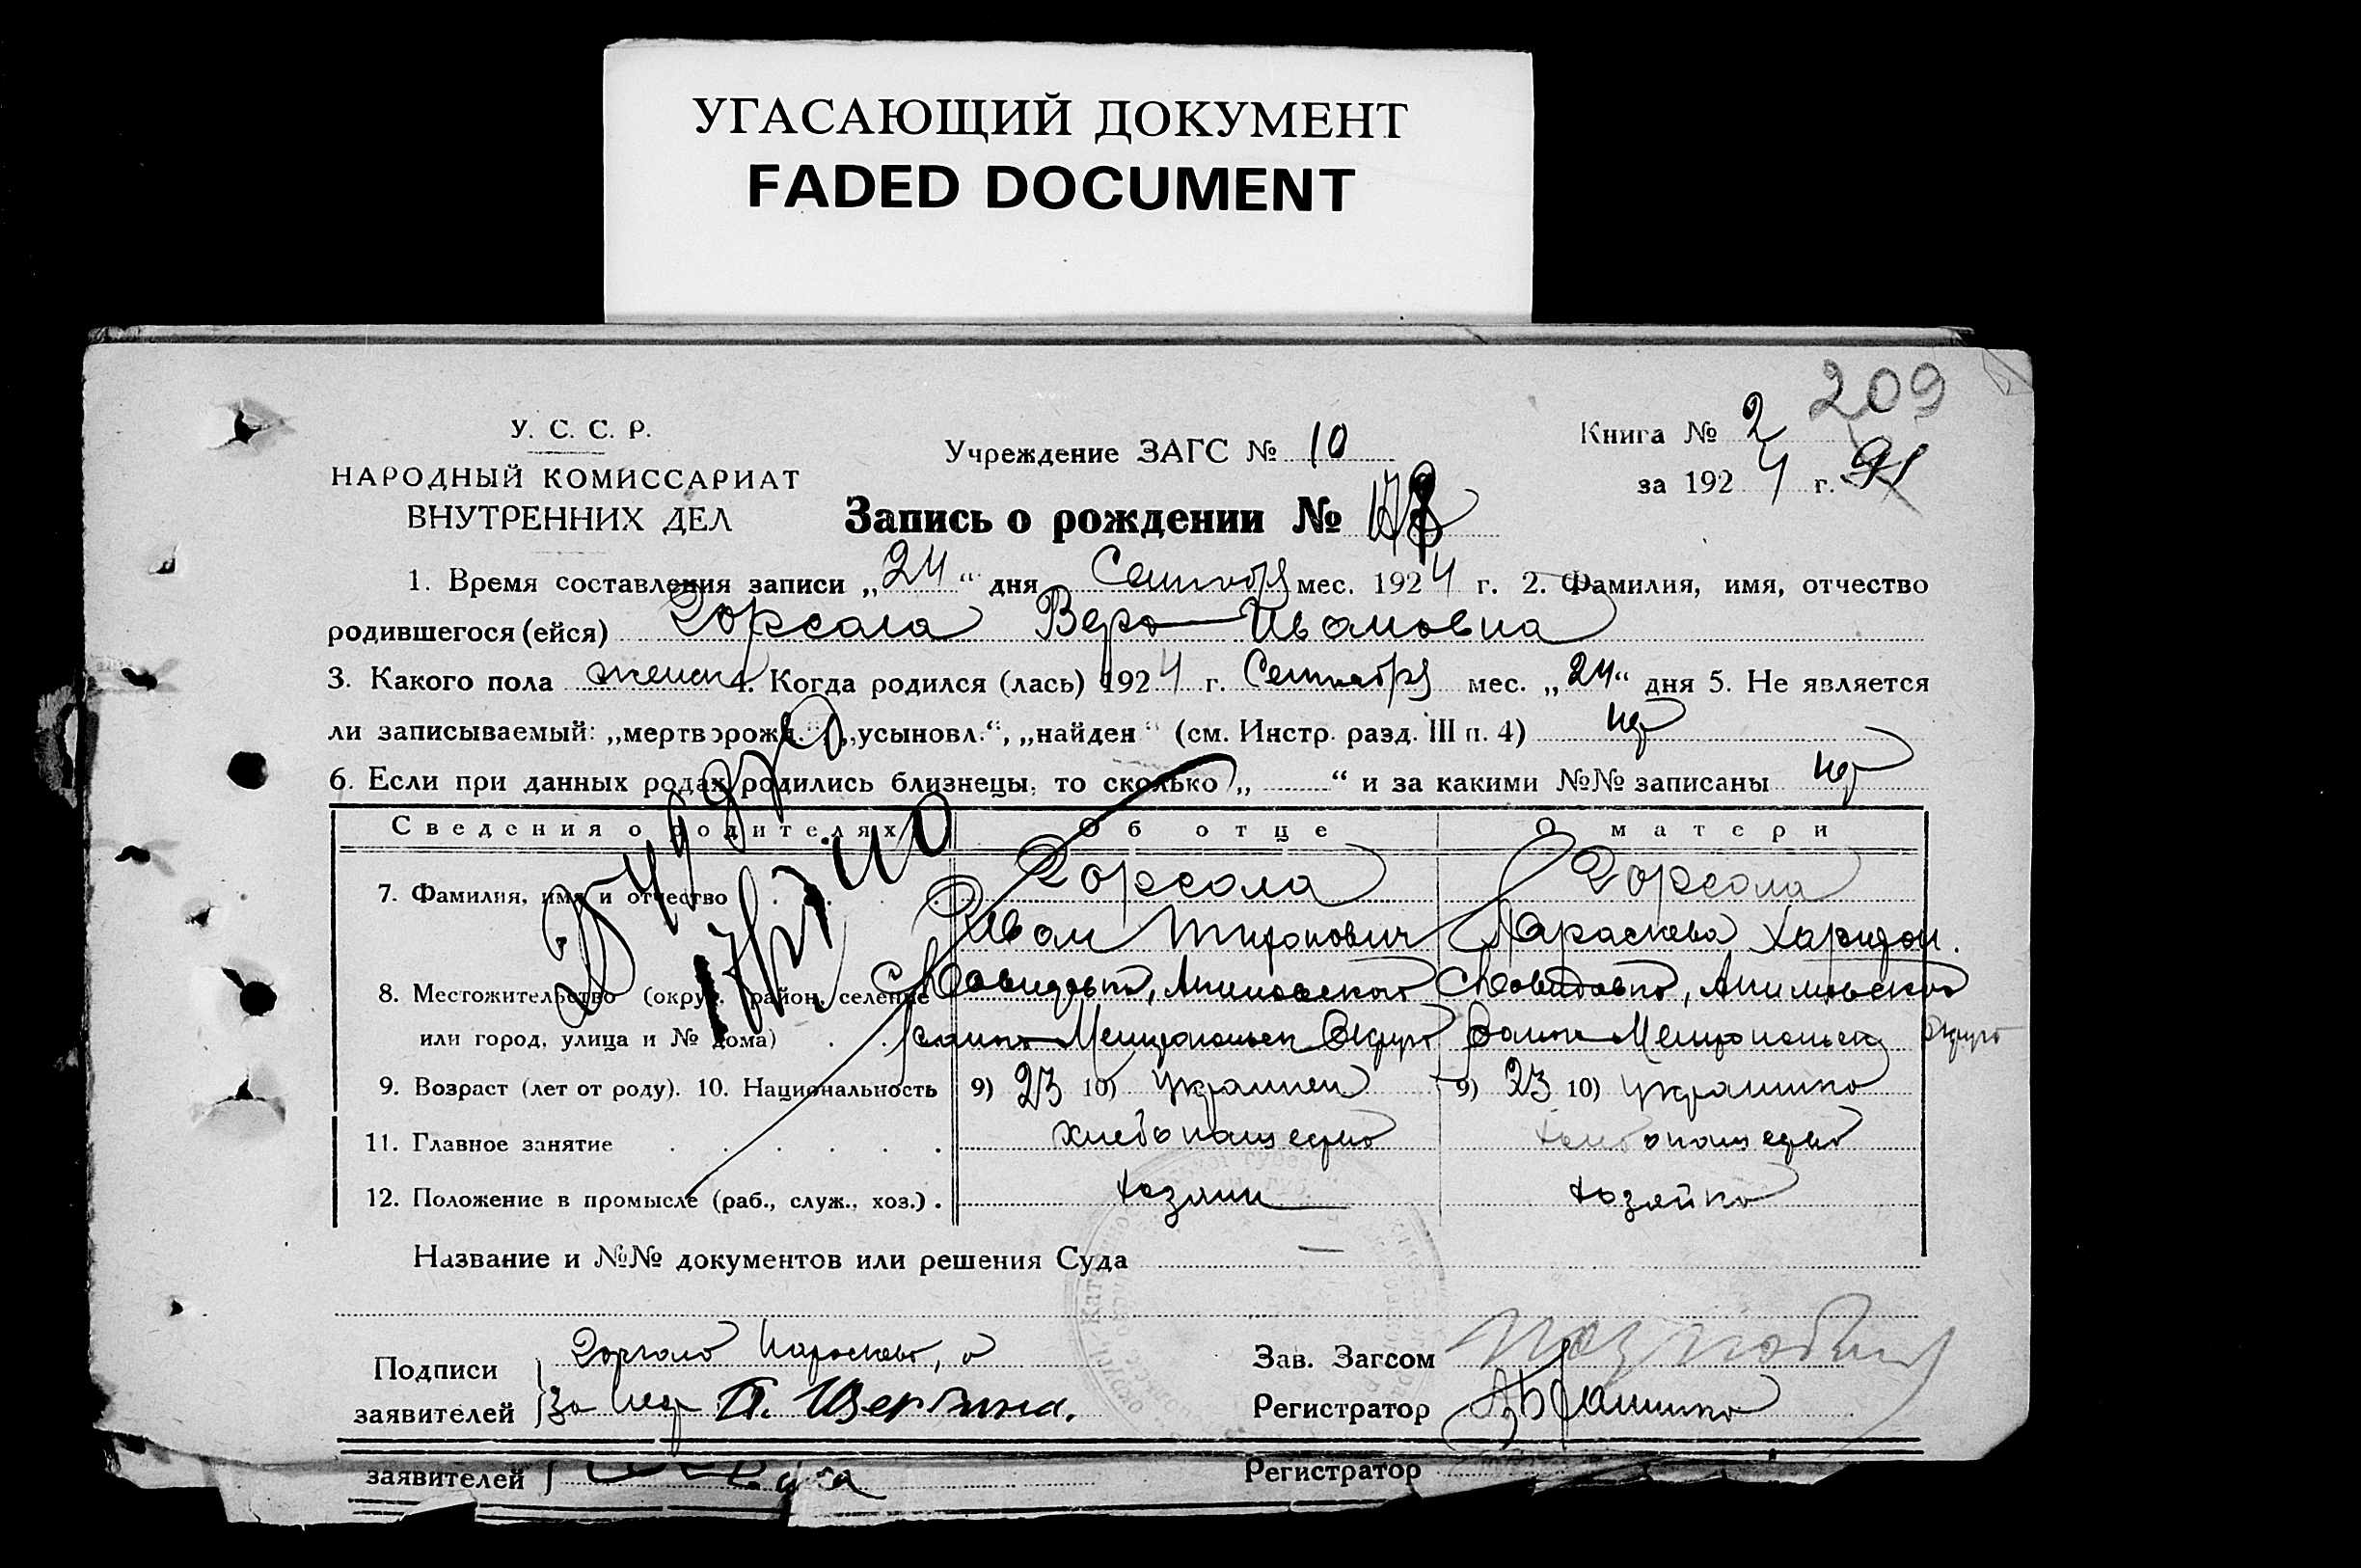 УГАСАЮЩИЙ ДОКУМЕНТ
FADED DOCUMENT
209
У. С. С. Р.
НАРОДНЫЙ КОМИССАРИАТ
ВНУТРЕННИХ ДЕЛ
Учреждение ЗАГС № 10
Книга № 2
за 1924 г. 91
Запись о рождении №
1. Время составления записи „24“ дня Сентября мес. 1924 г. 2. Фамилия, имя, отчество
родившегося (ейся) Вера Ивановна
3. Какого пола женск 4. Когда родился (лась) 1924 г. Сентября мес. „24“ дня 5. Не является
ли записываемый: „мертворожд.“, „усыновл.“, „найден“ (см. Инстр. разд. III п. 4) нет
6. Если при данных родах родились близнецы, то сколько „ “ и за какими №№ записаны нет
Сведения о родителях Об отце О матери
7. Фамилия, имя и отчество
Иван Параскева Харитон.
8. Местожительство (округ, район, селение Акимовского Акимовского
или город, улица и № дома) Мелитопольск Округа Мелитопольск Округа
9. Возраст (лет от роду). 10. Национальность 9) 23 10) украинец 9) 23 10) украинка
11. Главное занятие хлебопашество хлебопашество
12. Положение в промысле (раб., служ., хоз.) . хозяин хозяйка
Название и №№ документов или решения Суда —
Подписи
заявителей за нея П. Щербина.
Зав. Загсом
Регистратор
заявителей
Регистратор